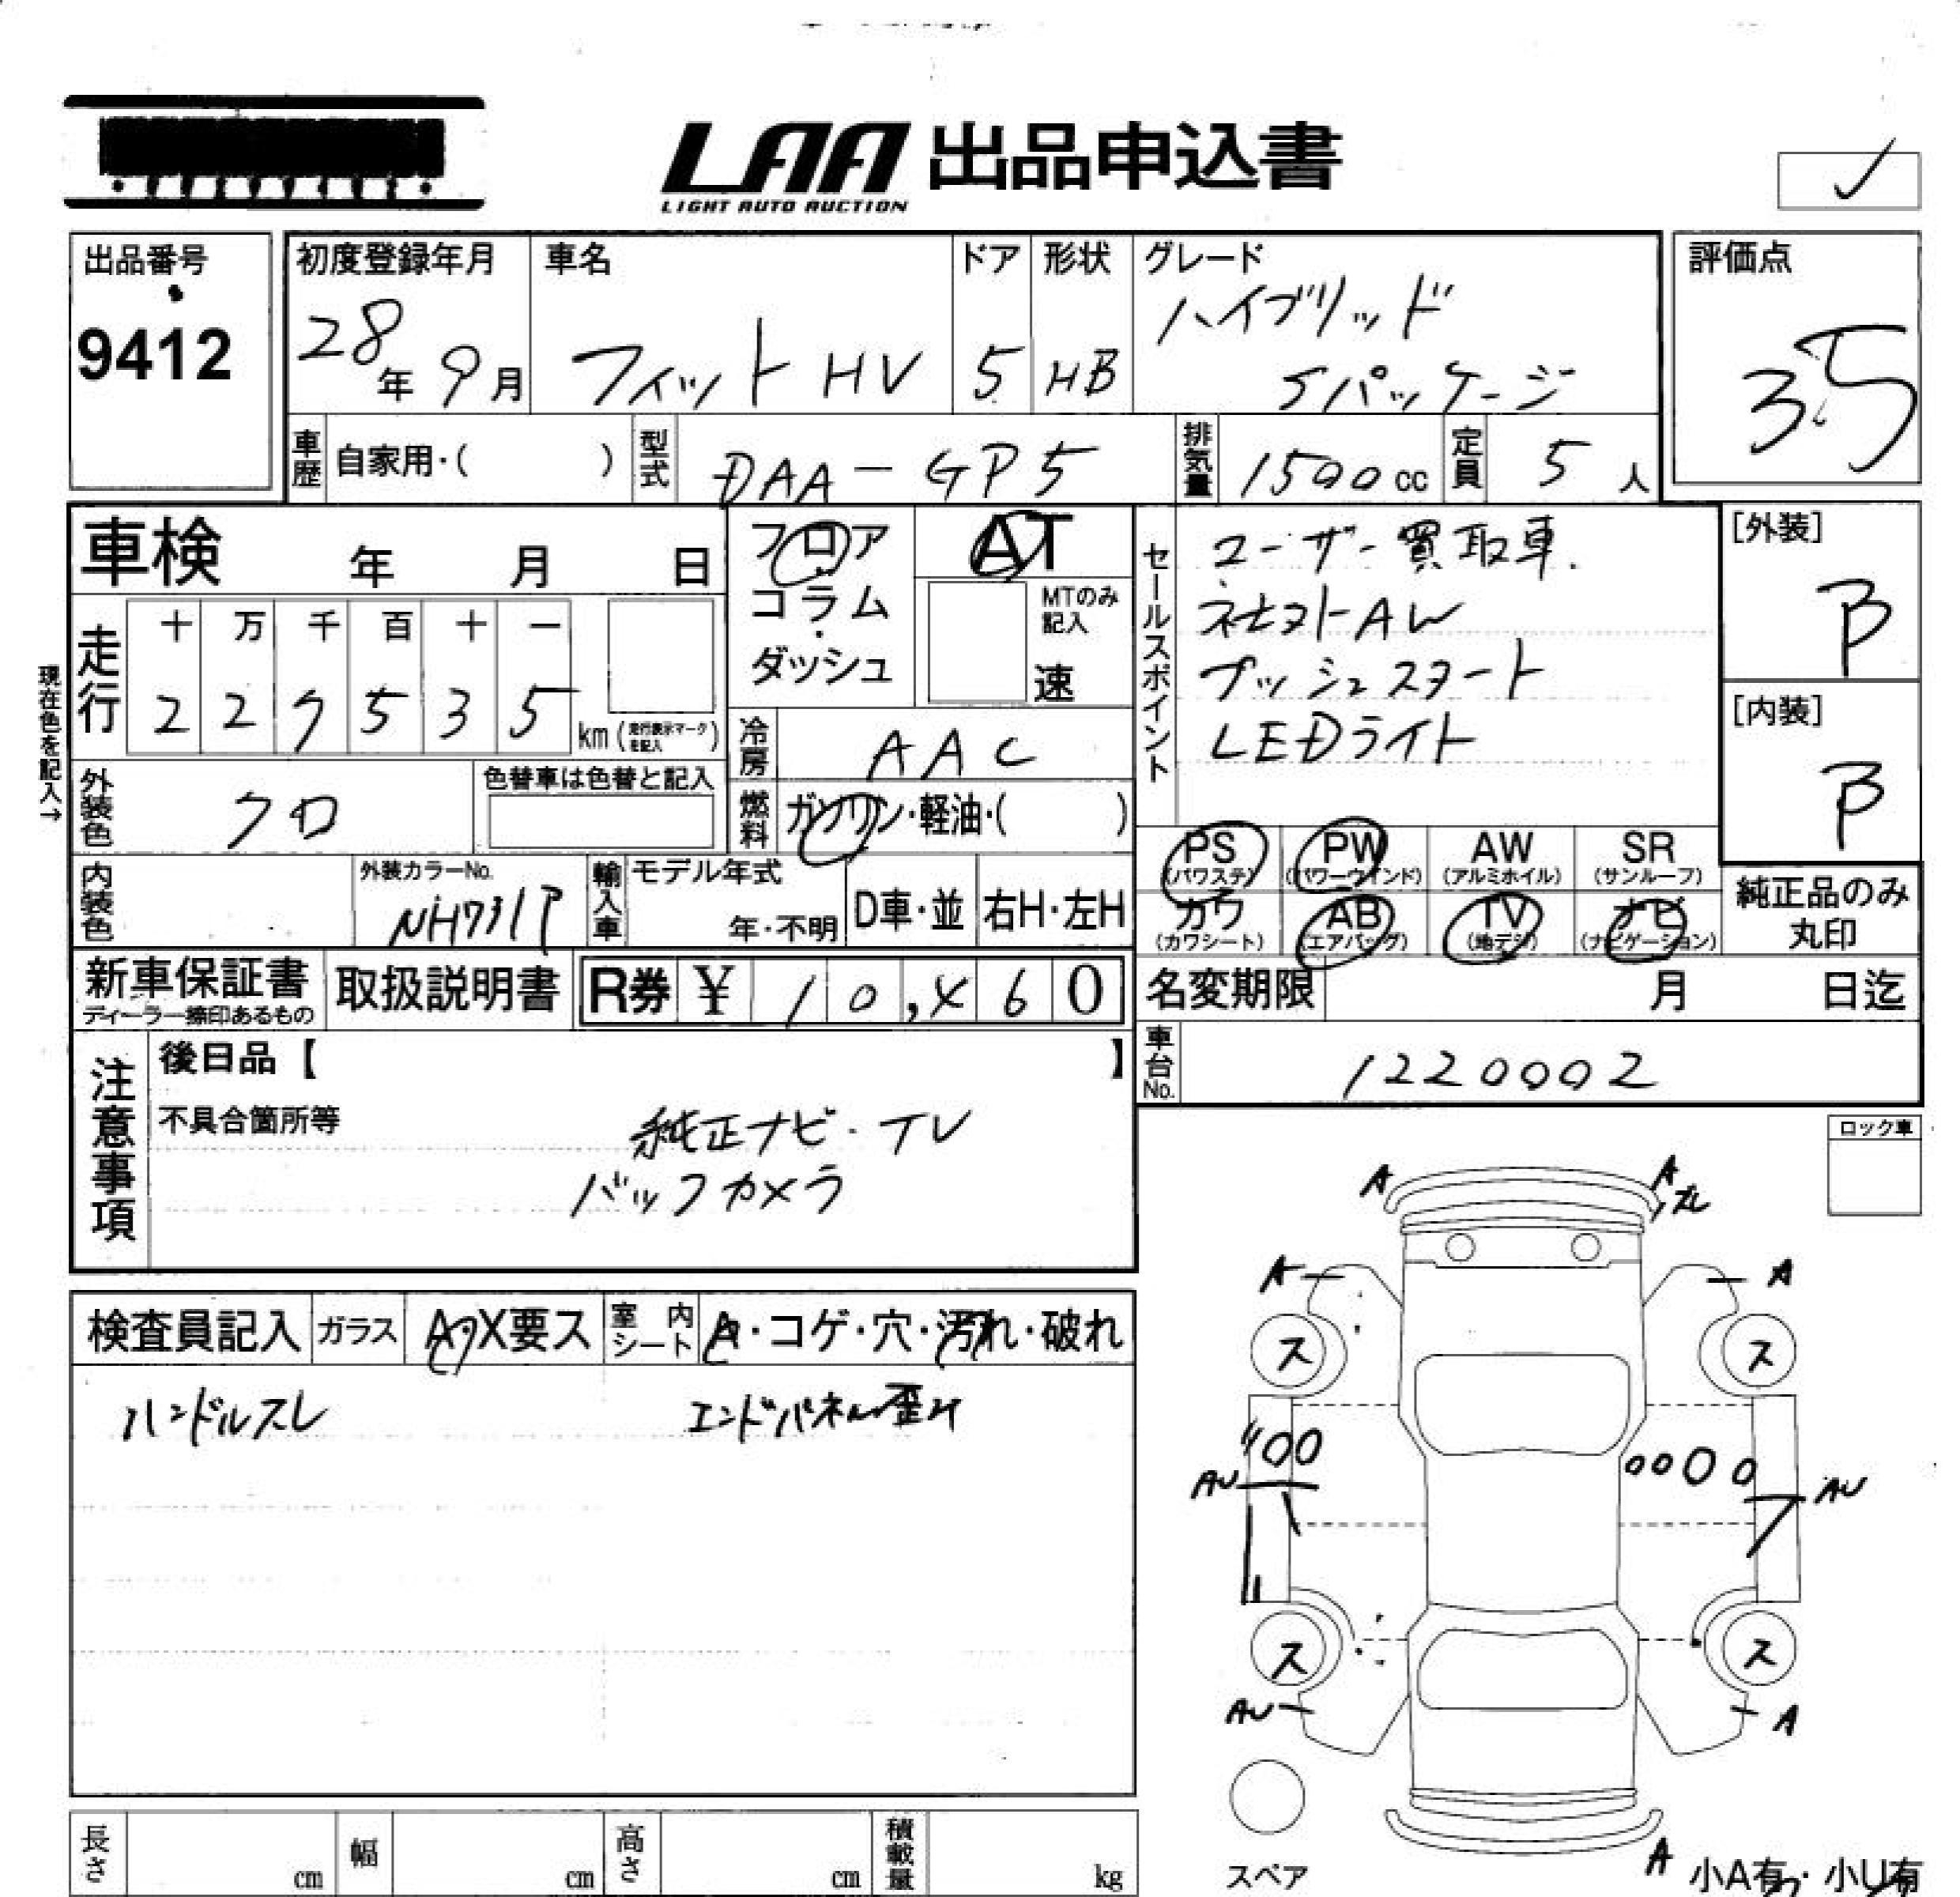 LAA 出品申込書
LIGHT AUTO AUCTION
出品番号
9412
初度登録年月
28年 9月
車名
フィット HV
ドア
5
形状
HB
グレード
ハイブリッド
Sパッケージ
評価点
3.5
車歴 自家用・( )
型式 DAA-GP5
排気量 1500 cc
定員 5 人
車検 年 月 日
フロア
コラム
ダッシュ
AT
MTのみ
記入
速
セールスポイント
ユーザー買取車.
社外AW
プッシュスタート
LEDライト
[外装]
B
[内装]
B
現在色を記入→
走行
十 万 千 百 十 一
2 2 7 5 3 5
km(走行表示マークを記入)
冷房 AAC
外装色 クロ
色替車は色替と記入
燃料 ガソリン・軽油・( )
PS PW AW SR
(パワステ) (パワーウインド) (アルミホイル) (サンルーフ)
カワ AB TV ナビ
(カワシート) (エアバッグ) (地デジ) (ナビゲーション)
純正品のみ
丸印
内装色
外装カラーNo.
NH731P
輸入車
モデル年式
年・不明
D車・並
右H・左H
新車保証書
ディーラー捺印あるもの
取扱説明書
R券 ¥ 10,460
名変期限 月 日迄
車台No. 1220002
注意事項
後日品【 】
不具合箇所等
純正ナビ・TV
バックカメラ
ロック車
検査員記入
ガラス
A・X要ス
室内シート
A・コゲ・穴・汚れ・破れ
ハンドルスレ
エンドパネル歪み
A A
ズレ
A A
ス ス
AU AU
ス ス
AU A
A
スペア
小A有・小U有
長さ cm
幅 cm
高さ cm
積載量 kg